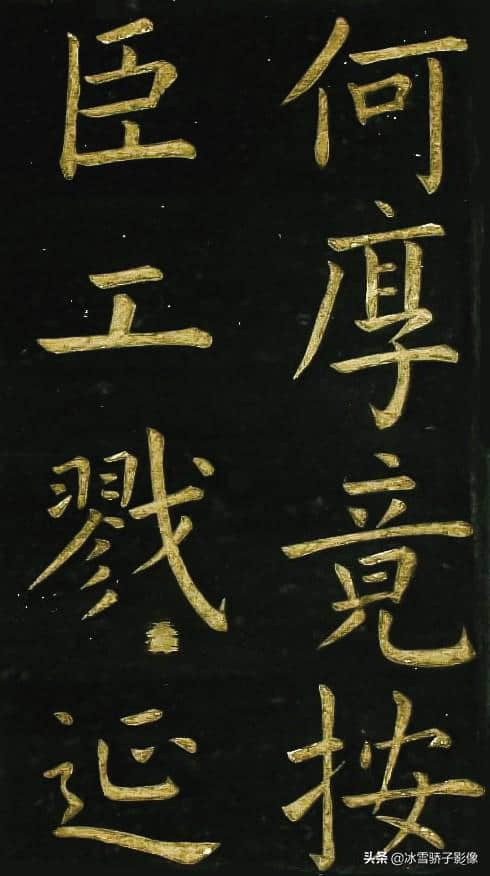 何厚竟按
臣工戮延
头条 @冰雪骄子影像